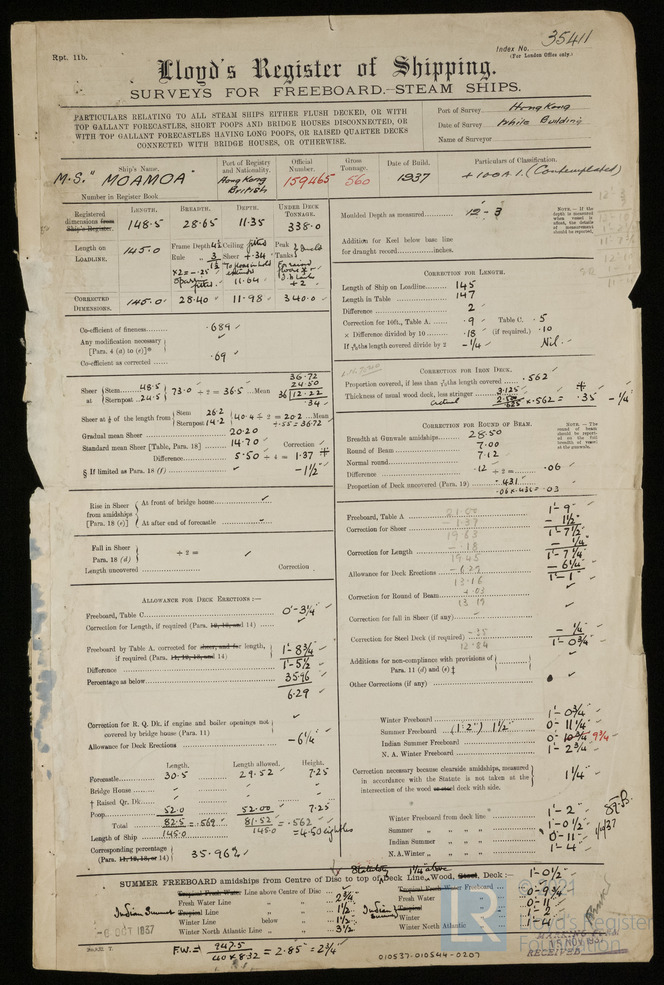 Rpt. 11b.
Index No. 35411
(For London Office only.)
Lloyd's Register of Shipping.
SURVEYS FOR FREEBOARD.—STEAM SHIPS.
PARTICULARS RELATING TO ALL STEAM SHIPS EITHER FLUSH DECKED, OR WITH
TOP GALLANT FORECASTLES, SHORT POOPS AND BRIDGE HOUSES DISCONNECTED, OR
WITH TOP GALLANT FORECASTLES HAVING LONG POOPS, OR RAISED QUARTER DECKS
CONNECTED WITH BRIDGE HOUSES, OR OTHERWISE.
Port of Survey Hong Kong
Date of Survey While Building
Name of Surveyor
Ship's Name. Port of Registry and Nationality. Official Number. Gross Tonnage. Date of Build. Particulars of Classification.
M.S. "MOAMOA" Hong Kong British 159465 560 1937 +100A.1. (Contemplated)
Number in Register Book
Registered dimensions from Ship's Register.
LENGTH. BREADTH. DEPTH. UNDER DECK TONNAGE.
148.5 28.65 11.35 338.0
Length on LOADLINE. 145.0 Frame Depth Ceiling fitted Peak Tanks
Rule 3 Sheer + .34
11.64 + 2
CORRECTED DIMENSIONS. 145.0 28.40 11.98 340.0
Co-efficient of fineness .689
Any modification necessary
[Para. 4 (a) to (e)]
Co-efficient as corrected .69
Sheer at Stem 48.5 Sternpost 24.5 73.0 ÷ 2 = 36.5 Mean
36.72
24.50
36 12.22
.34
Sheer at 1/8 of the length from Stem 26.2 Sternpost 14.2 40.4 ÷ 2 = 20.2 Mean
÷ .55 = 36.72
Gradual mean Sheer 20.20
Standard mean Sheer [Table, Para. 18] 14.70 Correction
Difference 5.50 ÷ 4 = 1.37
§ If limited as Para. 18 (f) -1½
Rise in Sheer from amidships [Para. 18 (e)]
At front of bridge house
At after end of forecastle
Fall in Sheer
Para. 18 (d) ÷ 2 =
Length uncovered Correction
ALLOWANCE FOR DECK ERECTIONS :—
Freeboard, Table C 0'-3¼
Correction for Length, if required (Para. 12, 13, and 14)
Freeboard by Table A, corrected for sheer, and for length,
if required (Para. 11, 12, 13, and 14) 1'-8¾
Difference 1'-5½
Percentage as below 35.96
6.29
Correction for R. Q. Dk. if engine and boiler openings not
covered by bridge house (Para. 11)
Allowance for Deck Erections -6¼
Length. Length allowed. Height.
Forecastle 30.5 29.52 7.25
Bridge House
† Raised Qr. Dk.
Poop 52.0 52.00 7.25
Total 82.5 = .569 81.52 = .562
Length of Ship 145.0 145.0 = 4.50 eighths
Corresponding percentage
(Para. 11, 12, 13, or 14) 35.96%
Moulded Depth as measured 12'-3
NOTE.—If the depth is measured when vessel is afloat, the details of measurements should be reported.
Addition for Keel below base line
for draught record inches.
CORRECTION FOR LENGTH.
Length of Ship on Loadline 145
Length in Table 147
Difference 2
Correction for 10ft., Table A. .9 Table C. .5
× Difference divided by 10 .18 (if required.) .10
If 6/10ths length covered divide by 2 -¼ Nil.
CORRECTION FOR IRON DECK.
Proportion covered, if less than 7/10ths length covered .562
Thickness of usual wood deck, less stringer 3.125
Actual 2.50
.625 × .562 = .35 -¼
CORRECTION FOR ROUND OF BEAM.
NOTE.—The round of beam should be reported on the full breadth of vessel at the gunwale.
Breadth at Gunwale amidships 28.50
Round of Beam 7.00
Normal round 7.12
Difference .12 ÷ 2 = .06
Proportion of Deck uncovered (Para. 19) .431
.06 × .431 = .03
Freeboard, Table A 21.00 1'-9"
Correction for Sheer -1.37 -1½
19.63 1'-7½
Correction for Length -.18 -¼
19.45 1'-7¼
Allowance for Deck Erections -6.29 -6¼
13.16 1'-1"
Correction for Round of Beam +.03
13.19
Correction for fall in Sheer (if any)
Correction for Steel Deck (if required) -.35 -¼
12.84 1'-0¾
Additions for non-compliance with provisions of
Para. 11 (d) and (e) ‡
Other Corrections (if any)
Winter Freeboard 1'-0¾
Summer Freeboard (1:2") 1½" 0'-11¼
Indian Summer Freeboard 0'-10¾ 9¾
N. A. Winter Freeboard 1'-2¾
Correction necessary because clearside amidships, measured
in accordance with the Statute is not taken at the
intersection of the wood or steel deck with side. 1¼"
Winter Freeboard from deck line 1'-2"
Summer " " " " 1'-0½
Indian Summer " " " 0'-11"
N. A. Winter " " " 1'-4"
1/10/37
SUMMER FREEBOARD amidships from Centre of Disc to top of Statutory Deck Line, 1¼ above Wood, Steel, Deck :— 1'-0½
Tropical Fresh Water Line above Centre of Disc
Fresh Water Line " " 2¾
Indian Summer Tropical Line " " 1½
Winter Line below " " 1½
Winter North Atlantic Line " " 3½
Tropical Fresh Water Freeboard
Fresh Water " 0'-9¾
Indian Summer Tropical " 0'-11"
Winter " 1'-2"
Winter North Atlantic " 1'-4"
-6 OCT 1937
F.W. = 247.5 / 40 × 8.32 = 2.85 = 2¾"
010537-010544-0207
15 NOV 1937
RECEIVED
© 2021
LR
Lloyd's Register
Foundation